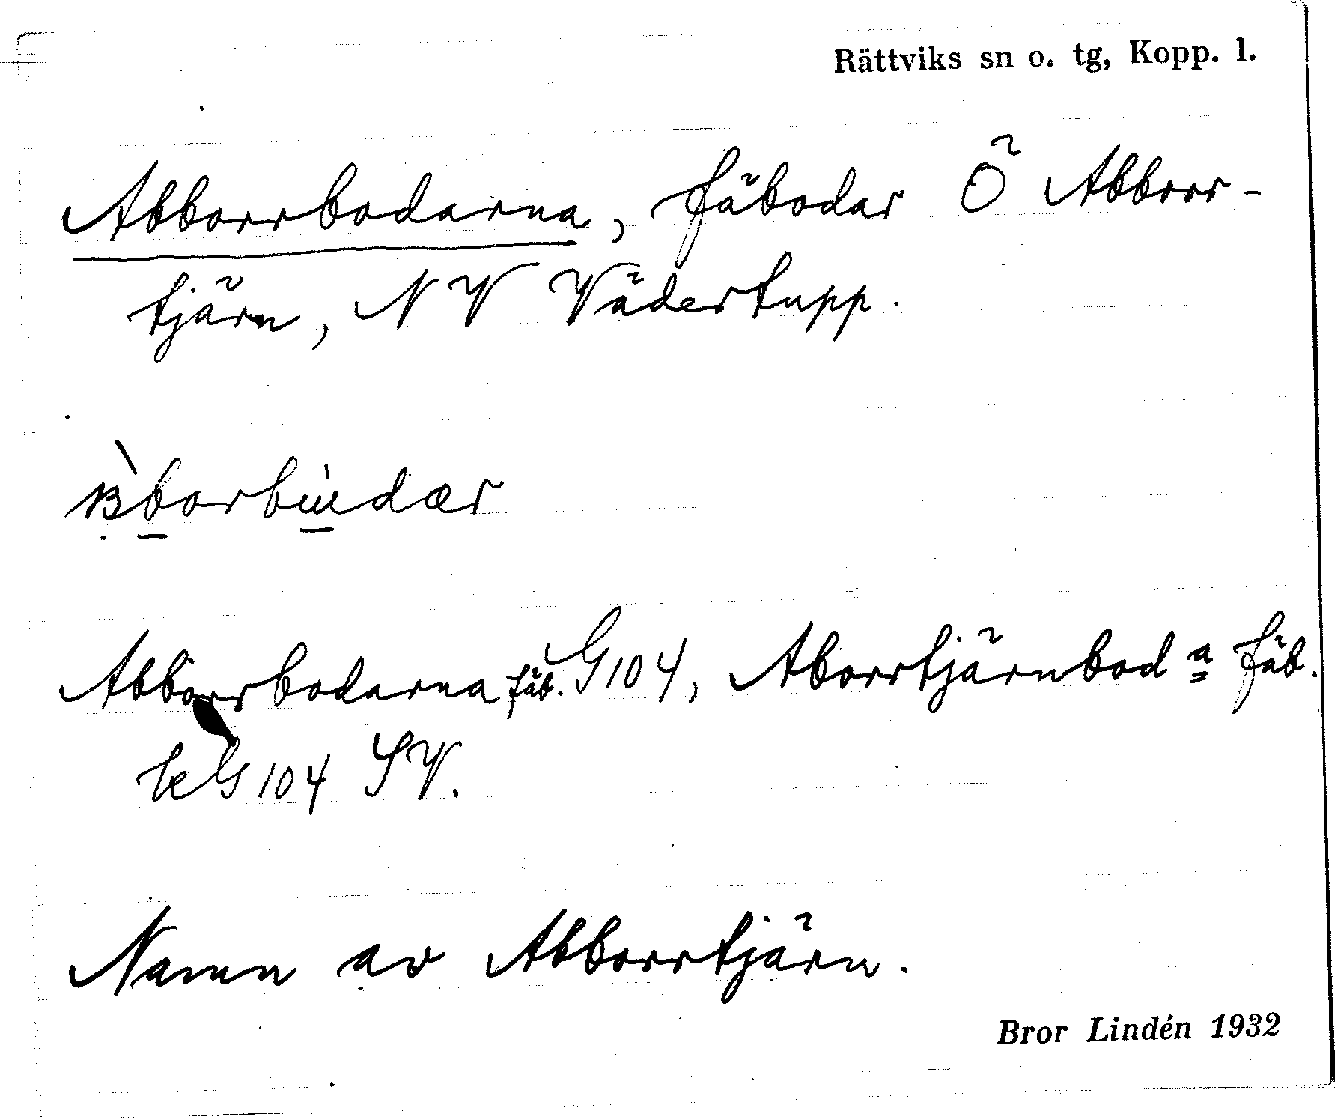 Rättviks sn o. tg, Kopp. l.
Abborrbodarna, fäbodar Ö Abborr-
tjärn, NV Vädertupp.
Abborrbodarna fäb. G104, Aborrtjärnbod a fäb.
le G104 SV.
Namn av Abborrtjärn.
Bror Lindén 1932